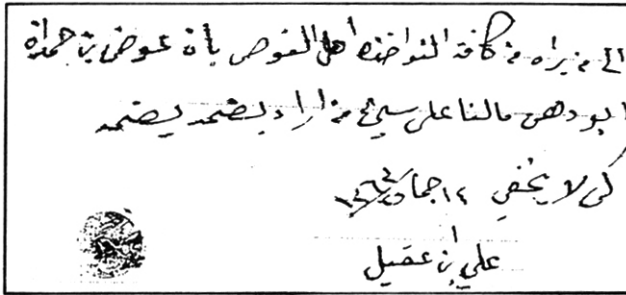 الى من يراه من كافة النواخذه أهل الغوص بأن عوض بن حمداة
ابو دهن مالنا على سبيل من اراد يضمه يضمه
كى لا يخفى ١٤ جماد
علي بن عقيل